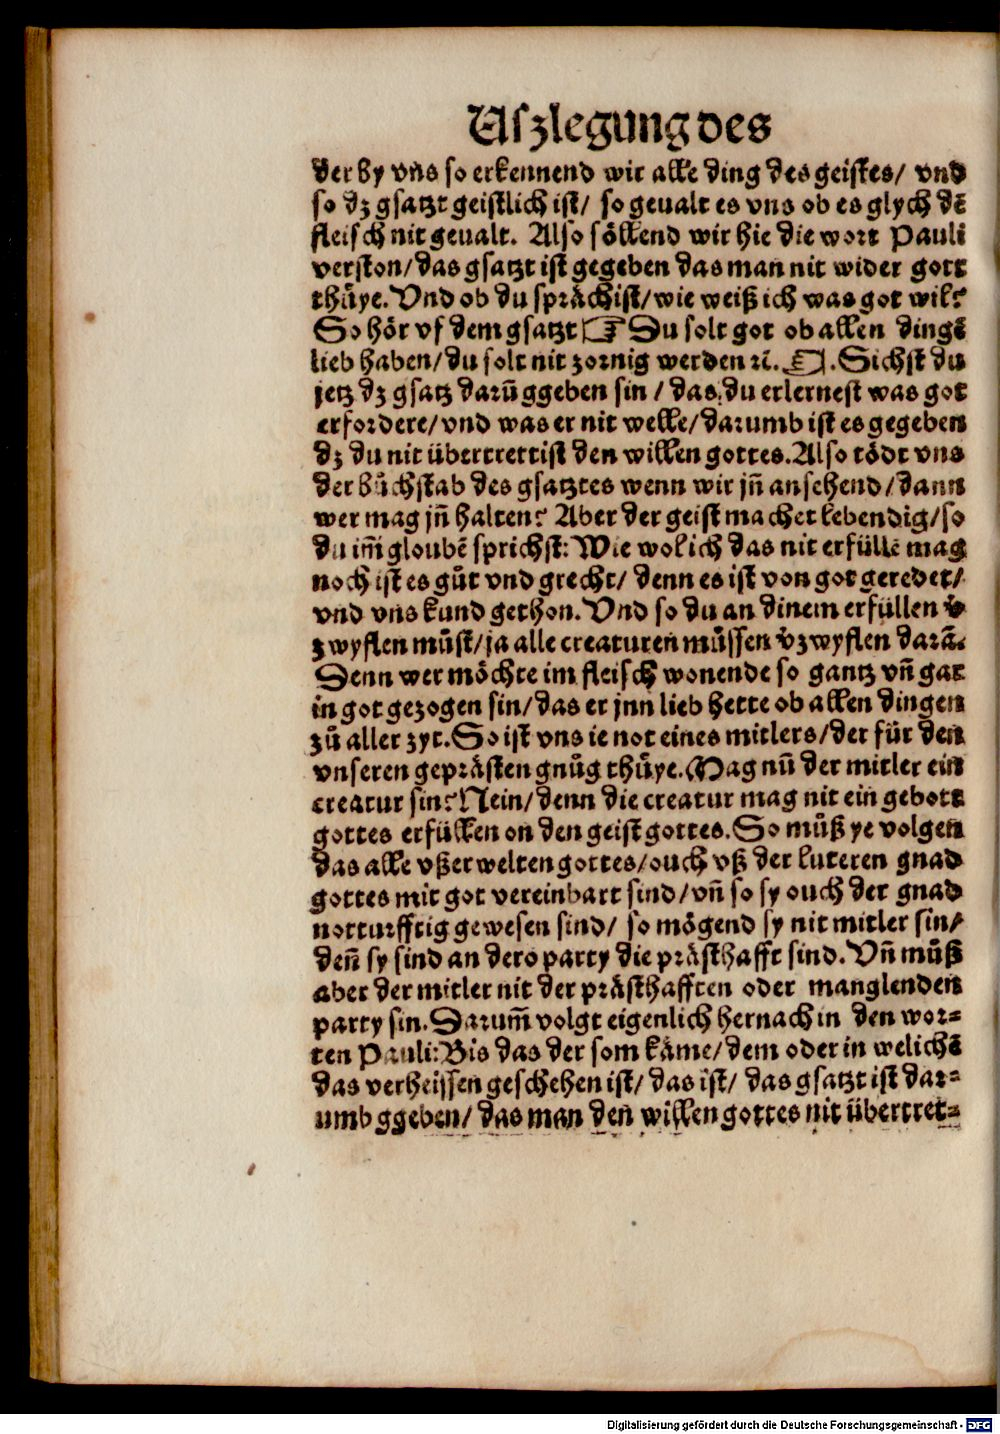 Uszlegung des
der by vns so erkennend wir alle ding des geistes/ vnd
so dz gsatzt geistlich ist/ so geualt es vns ob es glych dē
fleisch nit geualt. Also söllend wir hie die wort Pauli
verston/das gsatzt ist gegeben das man nit wider gott
thuͤye. Vnd ob du sprächist/wie weiß ich was got wil?
So hör vf dem gsatzt ☞ Du solt got ob allen dingē
lieb haben/du solt nit zornig werden ꝛc̄. ☜. Sichst du
jetz dz gsatz darū ggeben sin / das du erlernest was got
erfordere/vnd was er nit welle/darumb ist es gegeben
dz du nit übertrettist den willen gottes. Also tödt vns
der buͦchstab des gsatztes wenn wir jn̄ ansehend/dann
wer mag jn̄ halten? Aber der geist machet lebendig/so
du im̄ gloubē sprichst: Wie wol ich das nit erfülle mag
noch ist es guͦt vnd grecht/ denn es ist von got geredet/
vnd vns kund gethon. Vnd so du an dinem erfüllen v̄
zwyflen muͦst/ja alle creaturen muͤssen v̄zwyflen darā.
Denn wer möchte im fleisch wonende so gantz vn̄ gar
in got gezogen sin/das er jnn lieb hette ob allen dingen
zuͦ aller zyt. So ist vns ie not eines mitlers/der für den
vnseren geprästen gnuͦg thuͤye. Mag nū der mitler ein
creatur sin? Nein/denn die creatur mag nit ein gebott
gottes erfüllen on den geist gottes. So muͦß ye volgen
das alle vßerwelten gottes/ouch vß der luteren gnad
gottes mit got vereinbart sind/vn̄ so sy ouch der gnad
notturfftig gewesen sind/ so mögend sy nit mitler sin/
den̄ sy sind an dero party die prästhafft sind. Vn̄ muͦß
aber der mitler nit der prästhafften oder manglenden
party sin. Darum̄ volgt eigenlich hernach in den wor⸗
ten Pauli: Bis das der som käme/dem oder in welichē
das verheissen geschehen ist/ das ist/ das gsatzt ist dar⸗
umb ggeben/ das man den willen gottes nit übertret⸗
Digitalisierung gefördert durch die Deutsche Forschungsgemeinschaft - DFG